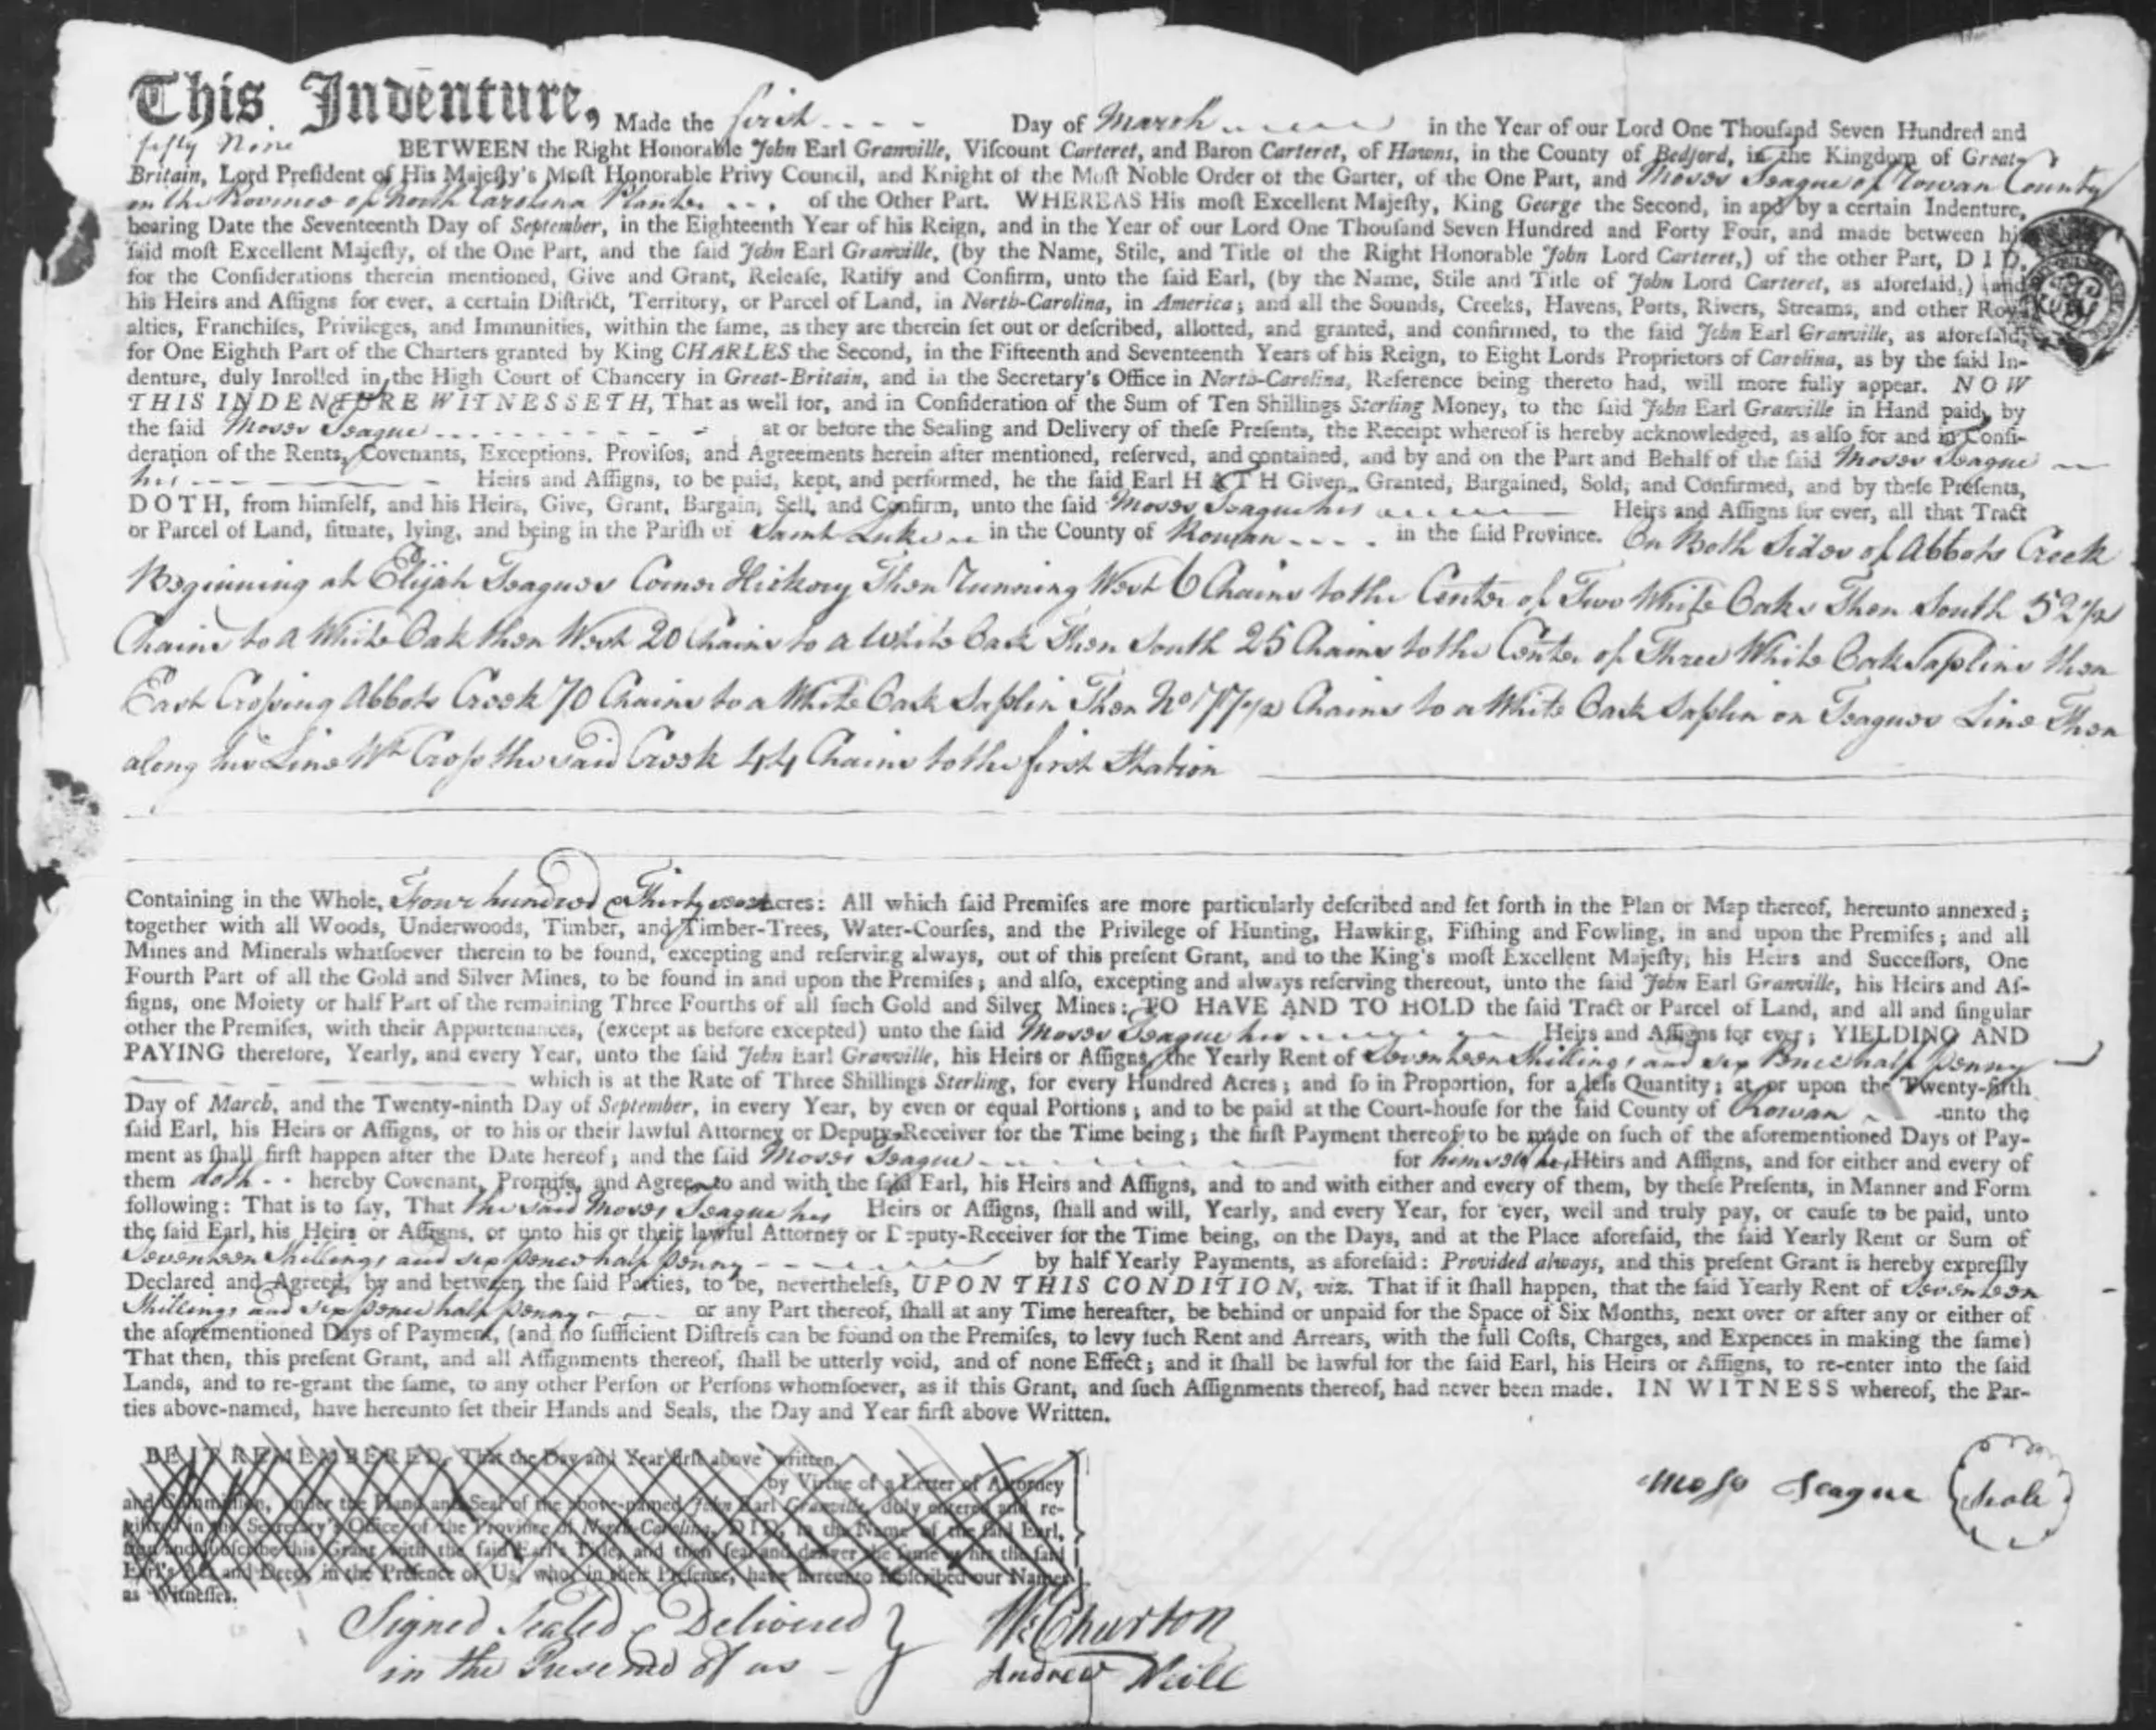 This Indenture, Made the first Day of March in the Year of our Lord One Thouſand Seven Hundred and
fifty Nine BETWEEN the Right Honorable John Earl Granville, Viſcount Carteret, and Baron Carteret, of Hawns, in the County of Bedford, in the Kingdom of Great-
Britain, Lord Preſident of His Majeſty's Moſt Honorable Privy Council, and Knight of the Moſt Noble Order of the Garter, of the One Part, and Moses Teague of Rowan County
in the Province of North Carolina Planter of the Other Part. WHEREAS His moſt Excellent Majeſty, King George the Second, in and by a certain Indenture,
bearing Date the Seventeenth Day of September, in the Eighteenth Year of his Reign, and in the Year of our Lord One Thouſand Seven Hundred and Forty Four, and made between his
ſaid moſt Excellent Majeſty, of the One Part, and the ſaid John Earl Granville, (by the Name, Stile, and Title of the Right Honorable John Lord Carteret,) of the other Part, DID,
for the Conſiderations therein mentioned, Give and Grant, Releaſe, Ratify and Confirm, unto the ſaid Earl, (by the Name, Stile and Title of John Lord Carteret, as aforeſaid,) and
his Heirs and Aſſigns for ever, a certain Diſtrict, Territory, or Parcel of Land, in North-Carolina, in America; and all the Sounds, Creeks, Havens, Ports, Rivers, Streams, and other Roy-
alties, Franchiſes, Privileges, and Immunities, within the ſame, as they are therein ſet out or deſcribed, allotted, and granted, and confirmed, to the ſaid John Earl Granville, as aforeſaid,
for One Eighth Part of the Charters granted by King CHARLES the Second, in the Fifteenth and Seventeenth Years of his Reign, to Eight Lords Proprietors of Carolina, as by the ſaid In-
denture, duly Inrolled in the High Court of Chancery in Great-Britain, and in the Secretary's Office in North-Carolina, Reference being thereto had, will more fully appear. NOW
THIS INDENTURE WITNESSETH, That as well for, and in Conſideration of the Sum of Ten Shillings Sterling Money, to the ſaid John Earl Granville in Hand paid, by
the ſaid Moses Teague at or before the Sealing and Delivery of theſe Preſents, the Receipt whereof is hereby acknowledged, as alſo for and in Conſi-
deration of the Rents, Covenants, Exceptions, Proviſos, and Agreements herein after mentioned, reſerved, and contained, and by and on the Part and Behalf of the ſaid Moses Teague
his Heirs and Aſſigns, to be paid, kept, and performed, he the ſaid Earl HATH Given, Granted, Bargained, Sold, and Confirmed, and by theſe Preſents,
DOTH, from himſelf, and his Heirs, Give, Grant, Bargain, Sell, and Confirm, unto the ſaid Moses Teague his Heirs and Aſſigns for ever, all that Tract
or Parcel of Land, ſituate, lying, and being in the Pariſh of Saint Luke in the County of Rowan in the ſaid Province. On Both Sides of Abbots Creek
Beginning at Elijah Teagues Corner Hickory Then Running West 6 Chains to the Center of Two White Oaks Then South 52 1/2
Chains to a White Oak then West 20 Chains to a White Oak Then South 25 Chains to the Center of Three White Oak Saplins then
East Crossing Abbots Creek 70 Chains to a White Oak Saplin Then No 77 1/2 Chains to a White Oak Saplin on Teagues Line Then
along his Line Wt Cross the said Creek 44 Chains to the first Station
Containing in the Whole, Four hundred & Thirty Acres: All which ſaid Premiſes are more particularly deſcribed and ſet forth in the Plan or Map thereof, hereunto annexed;
together with all Woods, Underwoods, Timber, and Timber-Trees, Water-Courſes, and the Privilege of Hunting, Hawking, Fiſhing and Fowling, in and upon the Premiſes; and all
Mines and Minerals whatſoever therein to be found, excepting and reſerving always, out of this preſent Grant, and to the King's moſt Excellent Majeſty, his Heirs and Succeſſors, One
Fourth Part of all the Gold and Silver Mines, to be found in and upon the Premiſes; and alſo, excepting and always reſerving thereout, unto the ſaid John Earl Granville, his Heirs and Aſ-
ſigns, one Moiety or half Part of the remaining Three Fourths of all ſuch Gold and Silver Mines: TO HAVE AND TO HOLD the ſaid Tract or Parcel of Land, and all and ſingular
other the Premiſes, with their Appurtenances, (except as before excepted) unto the ſaid Moses Teague his Heirs and Aſſigns for ever; YIELDING AND
PAYING therefore, Yearly, and every Year, unto the ſaid John Earl Granville, his Heirs or Aſſigns, the Yearly Rent of Seventeen Shillings and six Pence half penny
which is at the Rate of Three Shillings Sterling, for every Hundred Acres; and ſo in Proportion, for a leſs Quantity; at or upon the Twenty-fifth
Day of March, and the Twenty-ninth Day of September, in every Year, by even or equal Portions; and to be paid at the Court-houſe for the ſaid County of Rowan unto the
ſaid Earl, his Heirs or Aſſigns, or to his or their lawful Attorney or Deputy-Receiver for the Time being; the firſt Payment thereof to be made on ſuch of the aforementioned Days of Pay-
ment as ſhall firſt happen after the Date hereof; and the ſaid Moses Teague for himself his Heirs and Aſſigns, and for either and every of
them doth hereby Covenant, Promiſe, and Agree to and with the ſaid Earl, his Heirs and Aſſigns, and to and with either and every of them, by theſe Preſents, in Manner and Form
following: That is to ſay, That the said Moses Teague his Heirs or Aſſigns, ſhall and will, Yearly, and every Year, for ever, well and truly pay, or cauſe to be paid, unto
the ſaid Earl, his Heirs or Aſſigns, or unto his or their lawful Attorney or Deputy-Receiver for the Time being, on the Days, and at the Place aforeſaid, the ſaid Yearly Rent or Sum of
Seventeen Shillings and six pence half penny by half Yearly Payments, as aforeſaid: Provided always, and this preſent Grant is hereby expreſſly
Declared and Agreed, by and between the ſaid Parties, to be, nevertheleſs, UPON THIS CONDITION, viz. That if it ſhall happen, that the ſaid Yearly Rent of Seventeen
Shillings and six pence half penny or any Part thereof, ſhall at any Time hereafter, be behind or unpaid for the Space of Six Months, next over or after any or either of
the aforementioned Days of Payment, (and no ſufficient Diſtreſs can be found on the Premiſes, to levy ſuch Rent and Arrears, with the full Coſts, Charges, and Expences in making the ſame)
That then, this preſent Grant, and all Aſſignments thereof, ſhall be utterly void, and of none Effect; and it ſhall be lawful for the ſaid Earl, his Heirs or Aſſigns, to re-enter into the ſaid
Lands, and to re-grant the ſame, to any other Perſon or Perſons whomſoever, as if this Grant, and ſuch Aſſignments thereof, had never been made. IN WITNESS whereof, the Par-
ties above-named, have hereunto ſet their Hands and Seals, the Day and Year firſt above Written.
BE IT REMEMBERED, That the Day and Year firſt above written,
by Virtue of a Letter of Attorney
and Commiſſion, under the Hand and Seal of the above-named John Earl Granville, duly entered and re-
giſtred in the Secretary's Office of the Province of North-Carolina, DID, in the Name of the ſaid Earl,
ſign and ſubſcribe this Grant with the ſaid Earl's Title, and then ſeal and deliver the ſame as his the ſaid
Earl's Act and Deed, in the Preſence of Us, who, in their Preſence, have hereunto ſubſcribed our Names
as Witneſſes.
Moses Teague Seale
Signed Sealed & Delivered
in the Presence of us
Wm Churton
Andrew Neill